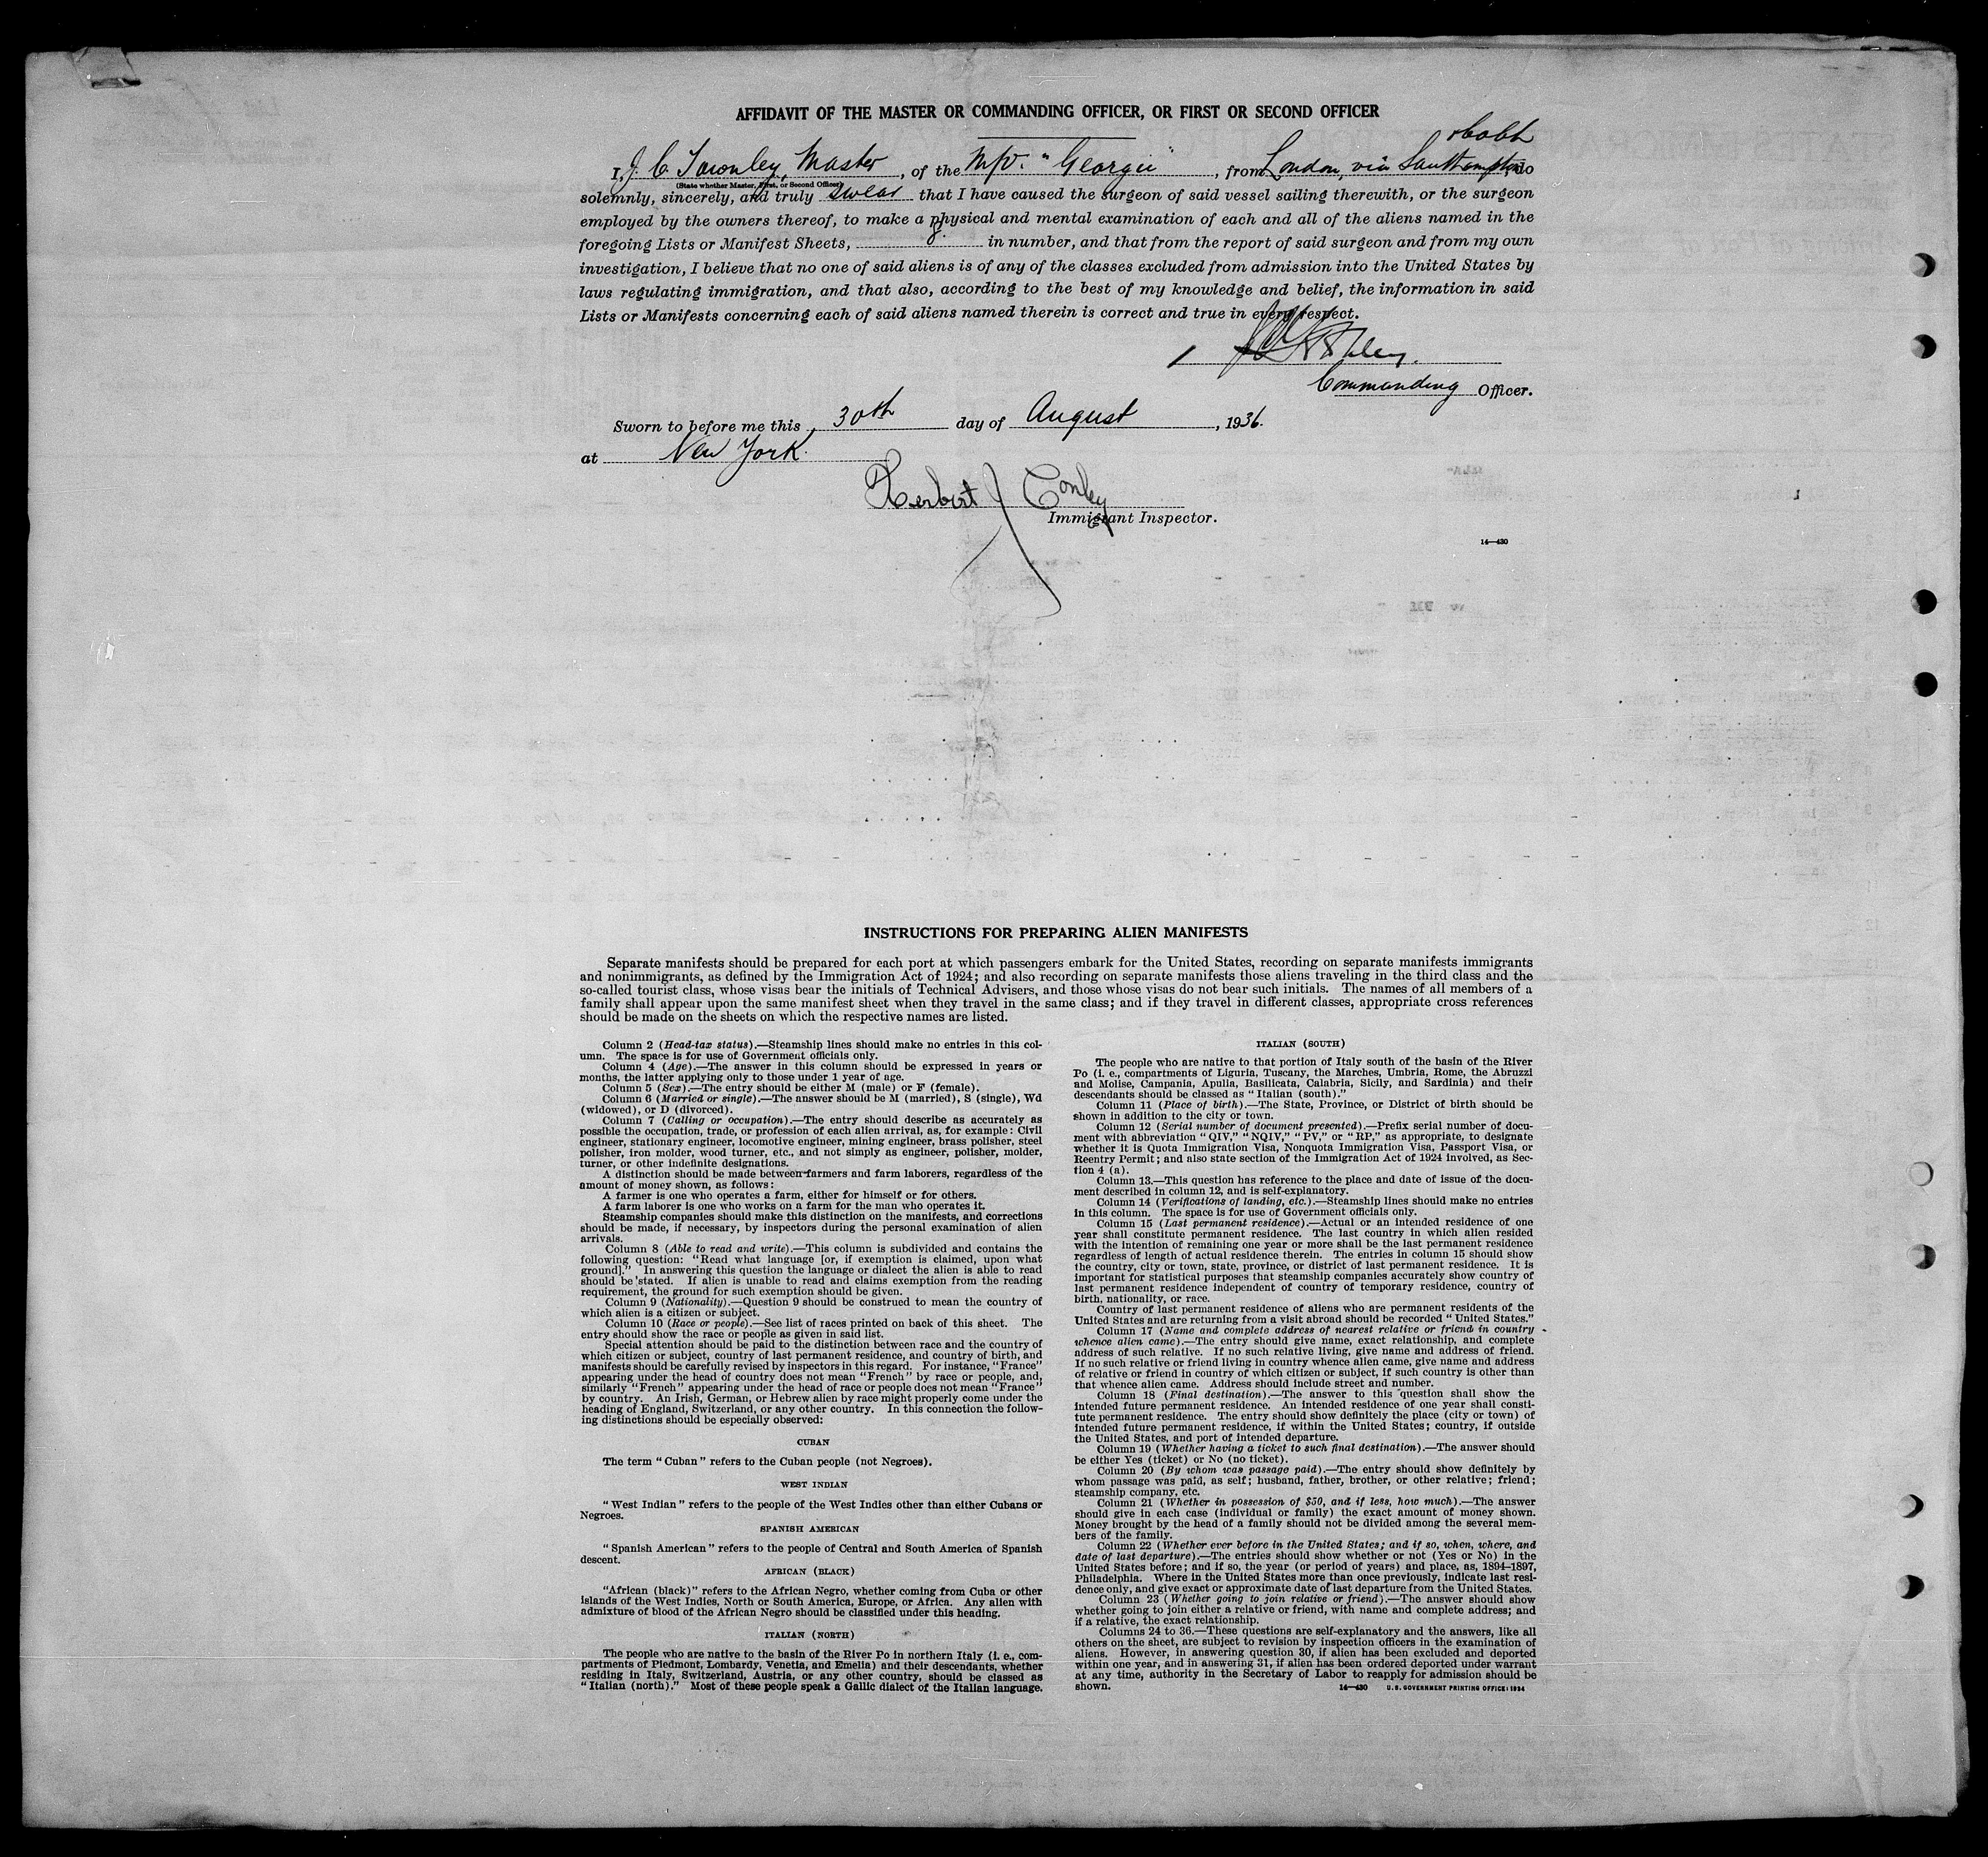 AFFIDAVIT OF THE MASTER OR COMMANDING OFFICER, OR FIRST OR SECOND OFFICER
& Cobh
I, J. C. Townley, Master, of the M/V. "Georgic", from London, via Southampton do
(State whether Master, First, or Second Officer)
solemnly, sincerely, and truly swear that I have caused the surgeon of said vessel sailing therewith, or the surgeon
employed by the owners thereof, to make a physical and mental examination of each and all of the aliens named in the
foregoing Lists or Manifest Sheets, 8. in number, and that from the report of said surgeon and from my own
investigation, I believe that no one of said aliens is of any of the classes excluded from admission into the United States by
laws regulating immigration, and that also, according to the best of my knowledge and belief, the information in said
Lists or Manifests concerning each of said aliens named therein is correct and true in every respect.
Commanding Officer.
Sworn to before me this 30th day of August, 1936.
at New York.
Herbert J Conley
Immigrant Inspector.
14—430
INSTRUCTIONS FOR PREPARING ALIEN MANIFESTS
Separate manifests should be prepared for each port at which passengers embark for the United States, recording on separate manifests immigrants
and nonimmigrants, as defined by the Immigration Act of 1924; and also recording on separate manifests those aliens traveling in the third class and the
so-called tourist class, whose visas bear the initials of Technical Advisers, and those whose visas do not bear such initials. The names of all members of a
family shall appear upon the same manifest sheet when they travel in the same class; and if they travel in different classes, appropriate cross references
should be made on the sheets on which the respective names are listed.
Column 2 (Head-tax status).—Steamship lines should make no entries in this col-
umn. The space is for use of Government officials only.
Column 4 (Age).—The answer in this column should be expressed in years or
months, the latter applying only to those under 1 year of age.
Column 5 (Sex).—The entry should be either M (male) or F (female).
Column 6 (Married or single).—The answer should be M (married), S (single), Wd
(widowed), or D (divorced).
Column 7 (Calling or occupation).—The entry should describe as accurately as
possible the occupation, trade, or profession of each alien arrival, as, for example: Civil
engineer, stationary engineer, locomotive engineer, mining engineer, brass polisher, steel
polisher, iron molder, wood turner, etc., and not simply as engineer, polisher, molder,
turner, or other indefinite designations.
A distinction should be made between farmers and farm laborers, regardless of the
amount of money shown, as follows:
A farmer is one who operates a farm, either for himself or for others.
A farm laborer is one who works on a farm for the man who operates it.
Steamship companies should make this distinction on the manifests, and corrections
should be made, if necessary, by inspectors during the personal examination of alien
arrivals.
Column 8 (Able to read and write).—This column is subdivided and contains the
following question: "Read what language [or, if exemption is claimed, upon what
ground]." In answering this question the language or dialect the alien is able to read
should be stated. If alien is unable to read and claims exemption from the reading
requirement, the ground for such exemption should be given.
Column 9 (Nationality).—Question 9 should be construed to mean the country of
which alien is a citizen or subject.
Column 10 (Race or people).—See list of races printed on back of this sheet. The
entry should show the race or people as given in said list.
Special attention should be paid to the distinction between race and the country of
which citizen or subject, country of last permanent residence, and country of birth, and
manifests should be carefully revised by inspectors in this regard. For instance, "France"
appearing under the head of country does not mean "French" by race or people, and,
similarly "French" appearing under the head of race or people does not mean "France"
by country. An Irish, German, or Hebrew alien by race might properly come under the
heading of England, Switzerland, or any other country. In this connection the follow-
ing distinctions should be especially observed:
CUBAN
The term "Cuban" refers to the Cuban people (not Negroes).
WEST INDIAN
"West Indian" refers to the people of the West Indies other than either Cubans or
Negroes.
SPANISH AMERICAN
"Spanish American" refers to the people of Central and South America of Spanish
descent.
AFRICAN (BLACK)
"African (black)" refers to the African Negro, whether coming from Cuba or other
islands of the West Indies, North or South America, Europe, or Africa. Any alien with
admixture of blood of the African Negro should be classified under this heading.
ITALIAN (NORTH)
The people who are native to the basin of the River Po in northern Italy (i. e., com-
partments of Piedmont, Lombardy, Venetia, and Emelia) and their descendants, whether
residing in Italy, Switzerland, Austria, or any other country, should be classed as
"Italian (north)." Most of these people speak a Gallic dialect of the Italian language.
ITALIAN (SOUTH)
The people who are native to that portion of Italy south of the basin of the River
Po (i. e., compartments of Liguria, Tuscany, the Marches, Umbria, Rome, the Abruzzi
and Molise, Campania, Apulia, Basilicata, Calabria, Sicily, and Sardinia) and their
descendants should be classed as "Italian (south)."
Column 11 (Place of birth).—The State, Province, or District of birth should be
shown in addition to the city or town.
Column 12 (Serial number of document presented).—Prefix serial number of docu-
ment with abbreviation "QIV," "NQIV," "PV," or "RP," as appropriate, to designate
whether it is Quota Immigration Visa, Nonquota Immigration Visa, Passport Visa, or
Reentry Permit; and also state section of the Immigration Act of 1924 involved, as Sec-
tion 4 (a).
Column 13.—This question has reference to the place and date of issue of the docu-
ment described in column 12, and is self-explanatory.
Column 14 (Verifications of landing, etc.).—Steamship lines should make no entries
in this column. The space is for use of Government officials only.
Column 15 (Last permanent residence).—Actual or an intended residence of one
year shall constitute permanent residence. The last country in which alien resided
with the intention of remaining one year or more shall be the last permanent residence
regardless of length of actual residence therein. The entries in column 15 should show
the country, city or town, state, province, or district of last permanent residence. It is
important for statistical purposes that steamship companies accurately show country of
last permanent residence independent of country of temporary residence, country of
birth, nationality, or race.
Country of last permanent residence of aliens who are permanent residents of the
United States and are returning from a visit abroad should be recorded "United States."
Column 17 (Name and complete address of nearest relative or friend in country
whence alien came).—The entry should give name, exact relationship, and complete
address of such relative. If no such relative living, give name and address of friend.
If no such relative or friend living in country whence alien came, give name and address
of relative or friend in country of which citizen or subject, if such country is other than
that whence alien came. Address should include street and number.
Column 18 (Final destination).—The answer to this question shall show the
intended future permanent residence. An intended residence of one year shall consti-
tute permanent residence. The entry should show definitely the place (city or town) of
intended future permanent residence, if within the United States; country, if outside
the United States, and port of intended departure.
Column 19 (Whether having a ticket to such final destination).—The answer should
be either Yes (ticket) or No (no ticket).
Column 20 (By whom was passage paid).—The entry should show definitely by
whom passage was paid, as self; husband, father, brother, or other relative; friend;
steamship company, etc.
Column 21 (Whether in possession of $50, and if less, how much).—The answer
should give in each case (individual or family) the exact amount of money shown.
Money brought by the head of a family should not be divided among the several mem-
bers of the family.
Column 22 (Whether ever before in the United States; and if so, when, where, and
date of last departure).—The entries should show whether or not (Yes or No) in the
United States before; and if so, the year (or period of years) and place, as, 1894–1897,
Philadelphia. Where in the United States more than once previously, indicate last resi-
dence only, and give exact or approximate date of last departure from the United States.
Column 23 (Whether going to join relative or friend).—The answer should show
whether going to join either a relative or friend, with name and complete address; and
if a relative, the exact relationship.
Columns 24 to 36.—These questions are self-explanatory and the answers, like all
others on the sheet, are subject to revision by inspection officers in the examination of
aliens. However, in answering question 30, if alien has been excluded and deported
within one year, and in answering 31, if alien has been ordered deported under warrant
at any time, authority in the Secretary of Labor to reapply for admission should be
shown.
14—430 U. S. GOVERNMENT PRINTING OFFICE: 1934